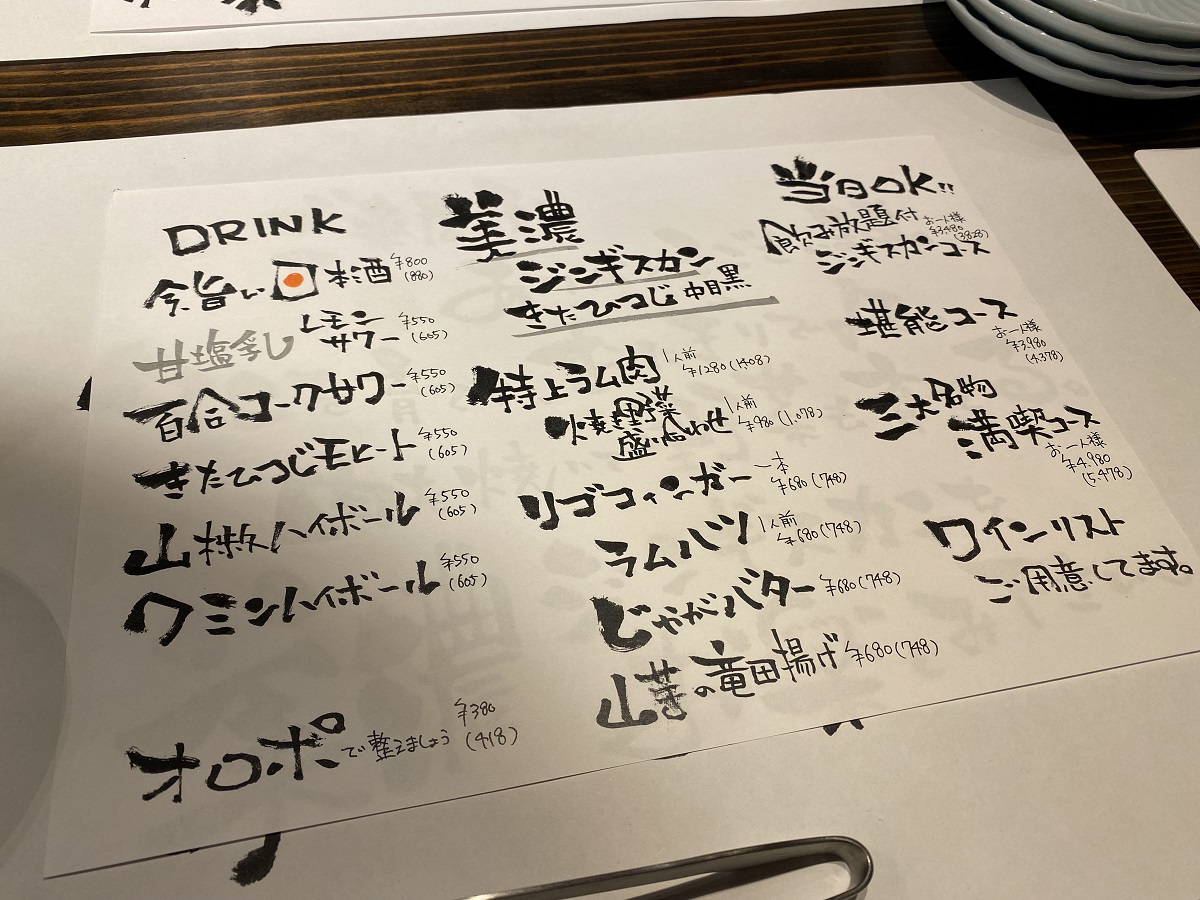 DRINK
今旨い日本酒 ¥800
(880)
甘塩乳し
レモン
サワー
¥550
(605)
百合コークサワー ¥550
(605)
きたひつじモヒート ¥550
(605)
山椒ハイボール ¥550
(605)
クミンハイボール ¥550
(605)
オロポで整えましょう ¥380
(418)
美濃
ジンギスカン
きたひつじ 中目黒
特上ラム肉 1人前
¥1280(1408)
焼き野菜
盛り合わせ
1人前
¥980(1,078)
リブフィンガー 一本
¥680(748)
ラムハツ 1人前
¥680(748)
じゃがバター ¥680(748)
山芋の竜田揚げ ¥680(748)
当日OK!!
飲み放題付
ジンギスカンコース
お一人様
¥3,480
(3828)
堪能コース
お一人様
¥3,980
(4,378)
三大名物
満喫コース
お一人様
¥4,980
(5,478)
ワインリスト
ご用意してます。